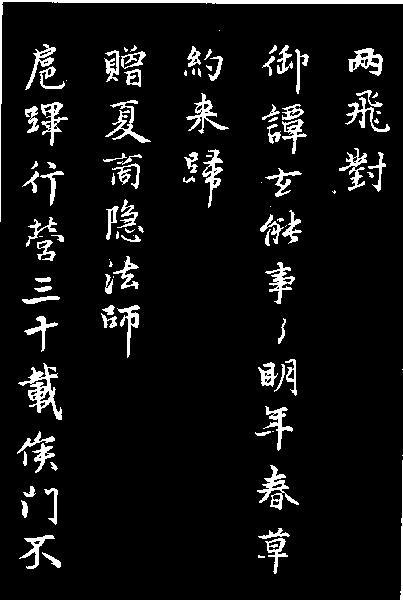 兩飛對
御譚玄能事了明年春草
約来歸
贈夏商隐法師
扈蹕行營三十載侯門不